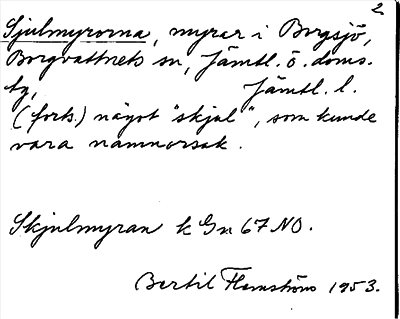 2.
Sjulmyrorna, myrar i Borgsjö,
Borgvattnets sn, Jämtl. ö. doms.
tg, Jämtl. l.
(forts.) något "skjul", som kunde
vara namnorsak.
Skjulmyran k Gn 67 NO.
Bertil Flemström 1953.